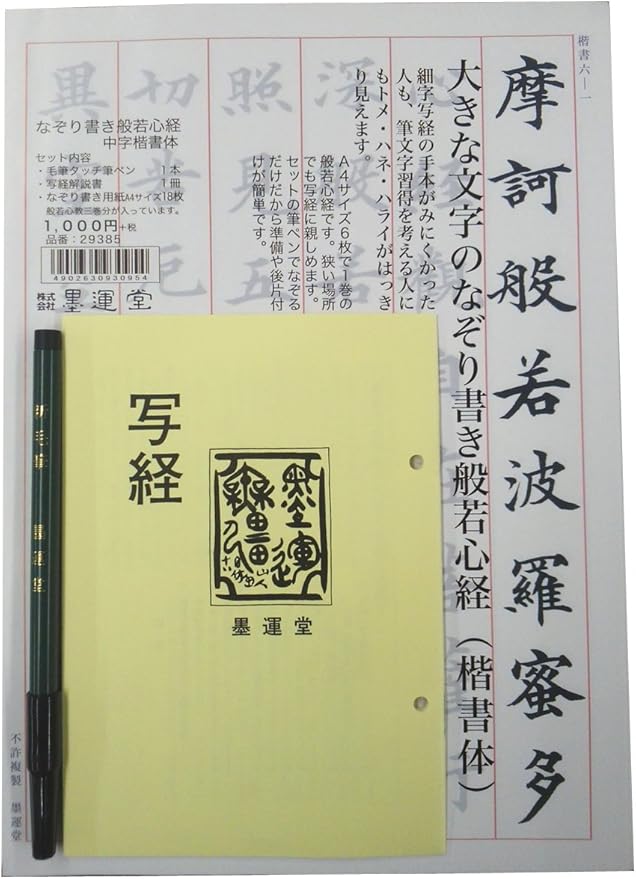 楷書六―一
摩訶般若波羅蜜多
大きな文字のなぞり書き般若心経（楷書体）
細字写経の手本がみにくかった
人も、筆文字習得を考える人に
もトメ・ハネ・ハライがはっき
り見えます。
A4サイズ6枚で1巻の
般若心経です。狭い場所
でも写経に親しめます。
セットの筆ペンでなぞる
だけだから準備や後片付
けが簡単です。
照見五
切苦厄
異
なぞり書き般若心経
中字楷書体
セット内容
・毛筆タッチ筆ペン 1本
・写経解説書 1冊
・なぞり書き用紙A4サイズ18枚
般若心教三巻分が入っています。
1,000円+税
品番：29385
4902630930954
株式会社 墨運堂
写経
墨運堂
新毛筆 墨運堂
不許複製 墨運堂